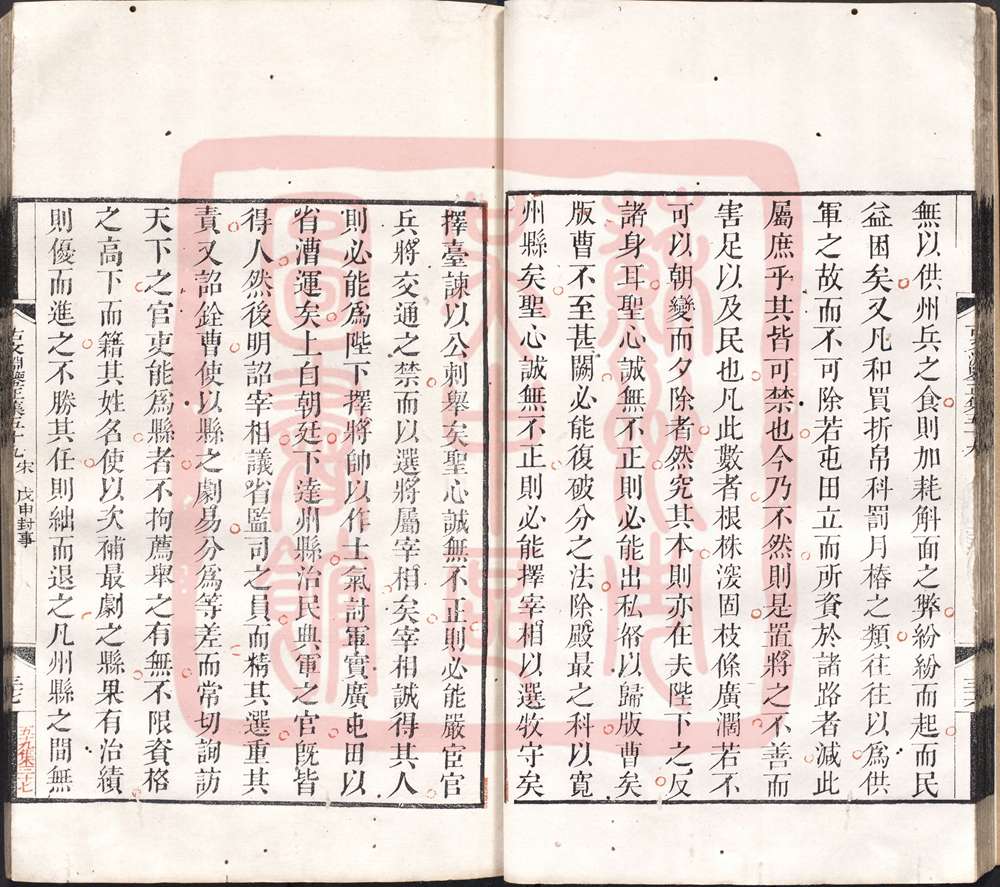 無以供州兵之食則加耗斛面之弊紛紛而起而民
益困矣又凡和買折帛科罰月樁之類往往以為供
軍之故而不可除若屯田立而所資於諸路者減此
屬庶乎其皆可禁也今乃不然則是置將之不善而
害足以及民也凡此數者根株深固枝條廣濶若不
可以朝變而夕除者然究其本則亦在夫陛下之反
諸身耳聖心誠無不正則必能出私帑以歸版曹矣
版曹不至甚闕必能復破分之法除殿最之科以寬
州縣矣聖心誠無不正則必能擇宰相以選牧守矣
擇臺諫以公刺舉矣聖心誠無不正則必能嚴宦官
兵將交通之禁而以選將屬宰相矣宰相誠得其人
則必能為陛下擇將帥以作士氣討軍實廣屯田以
省漕運矣上自朝廷下達州縣治民典軍之官旣皆
得人然後明詔宰相議省監司之員而精其選重其
責又詔銓曹使以縣之劇易分為等差而常切詢訪
天下之官吏能為縣者不拘薦舉之有無不限資格
之高下而籍其姓名使以次補最劇之縣果有治績
則優而進之不勝其任則絀而退之凡州縣之間無
古文淵鑒正集五十九 宋 戊申封事
五九集三十七